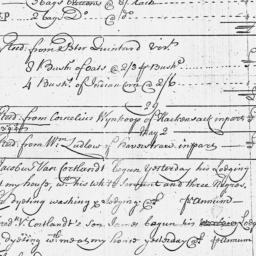 3 bags Buttons @ 6/ Each
P. 2 bag Do @ Do
Recd. from Peter Quintard vizt.
8 Bushs. of oats @ 2/3 P Bushl.
4 Bushs. of Indian Corn @ 2/6
29
Recd. from Cornelius Wynkoop of Hackensack in part
May 2
Recd. from Wm. Ludlow of Haverstraw in part
Jacobus Van Cortlandt begun yesterday his Lodging
at my house, wth. his white Servant and three Negros.
dyeting washing & Lodging @ P annum
Fredk. V. Cortlandt's son James begun his Lodg
dyeting wth. me at my house yesterday @ P annum